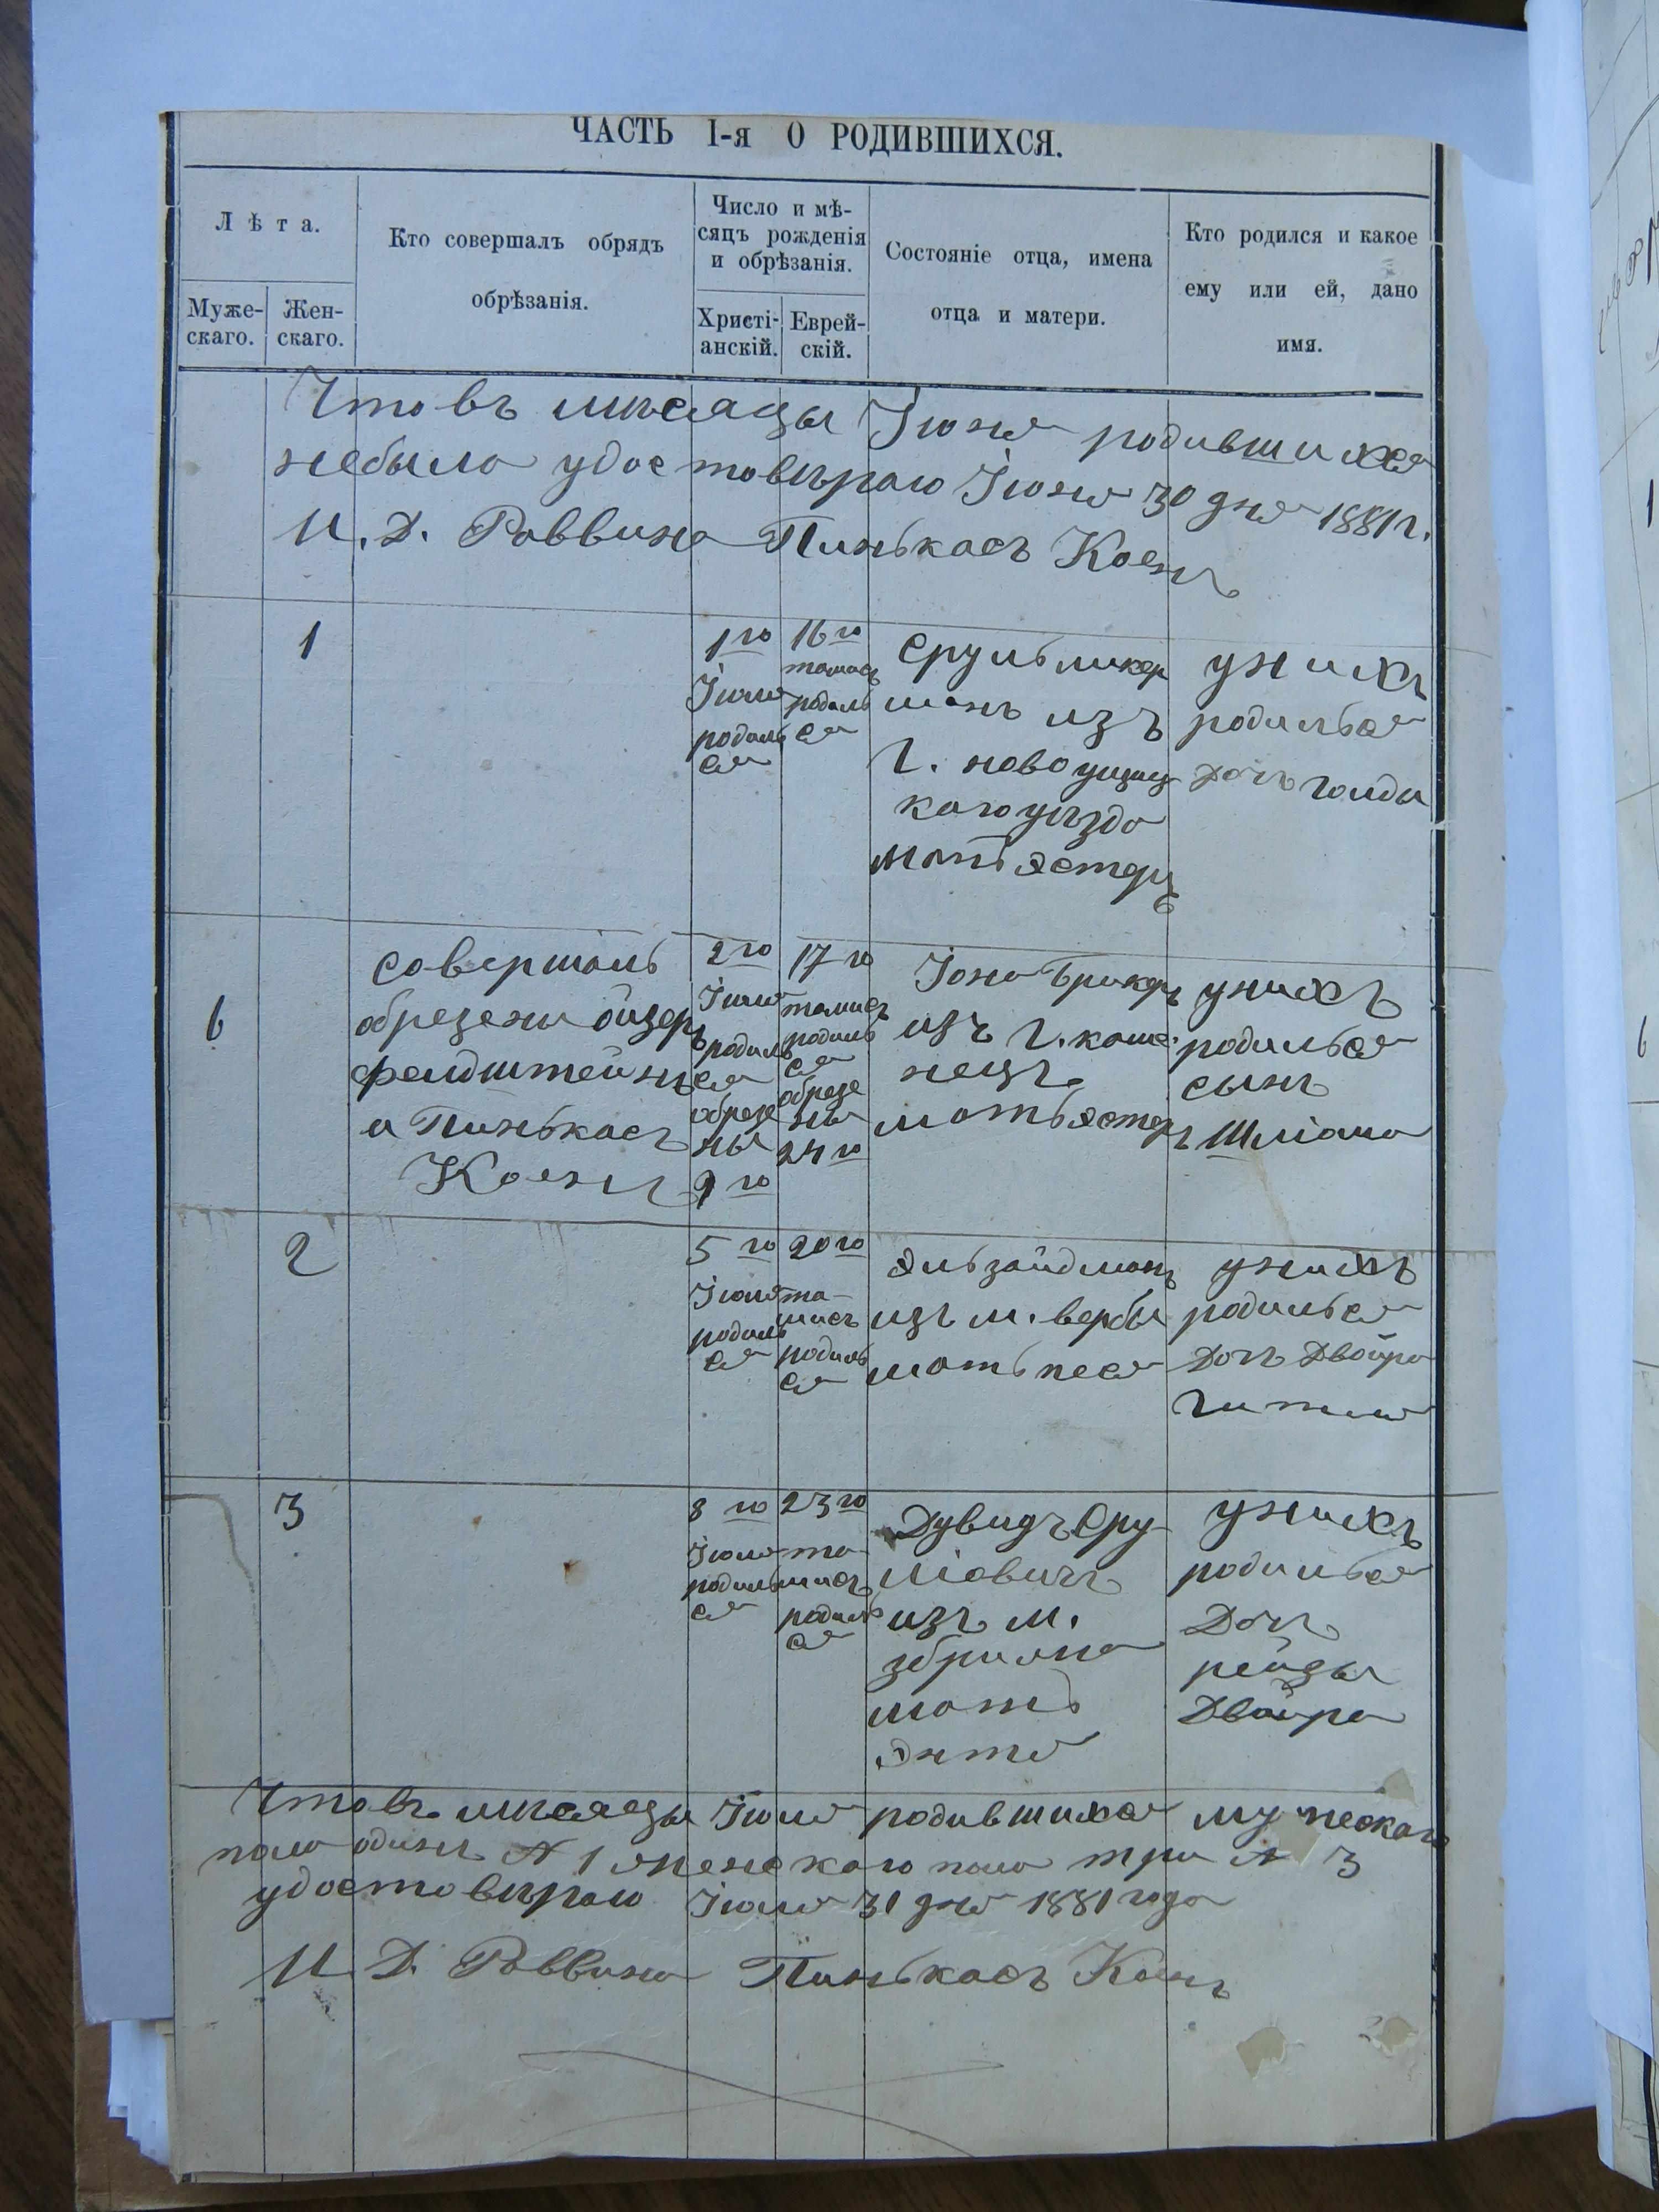 ЧАСТЬ I-я О РОДИВШИХСЯ.
Лѣта.
Муже-
скаго.
Жен-
скаго.
Кто совершалъ обрядъ
обрѣзанія.
Число и мѣ-
сяцъ рожденія
и обрѣзанія.
Христі-
анскій.
Еврей-
скій.
Состояніе отца, имена
отца и матери.
Кто родился и какое
ему или ей, дано
имя.
Что въ мѣсяцы Іюня родившихся
небыло удостовѣраю Іюня 30 дня 1881 г.
И. Д. Раввина Пинькасъ Коенъ
1
1 го
Іюля
родиль
ся
16 го
тамисъ
родиль
ся
Сруль
манъ изъ
Г. новоушиц
каго уѣзда
мать Эстеръ
унихъ
родилься
дочь голды
6
совершаль
обрезены ойзеръ
фелдштейнъ
и Пинькасъ
Коенъ
2 го
Іюля
родиль
ся
обрезе
ны
9 го
17 го
тамисъ
родиль
ся
обрезе
ны
24 го
Іона Брикеръ
изъ г. каме
нецъ
мать эстеръ
унихъ
родилься
сынъ
Шліома
2
5 го
Іюля
родиль
ся
20 го
та-
мисъ
родиль
ся
Эль зайдманъ
изъ м. вербы
мать песя
унихъ
родилься
дочь Двойра
гитля
3
8 го
Іюля
родиль
ся
23 го
та-
мисъ
родиль
ся
Дувидъ Сру-
ліовичъ
изъ м.
мать
Энтя
унихъ
родилься
дочь
рейзы
Двойра
Что въ мѣсяцы Іюля родившихся мужескаго
пала одинъ № 1 женскаго пала три № 3
удостовѣраю Іюля 31 дня 1881 года
И. Д. Раввина Пинькасъ Коенъ